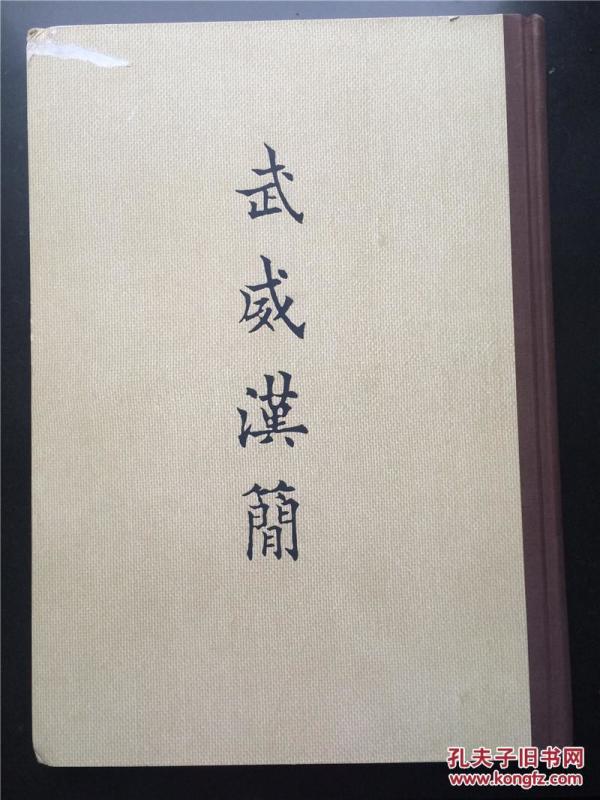 武威漢簡
孔夫子旧书网
www.kongfz.com